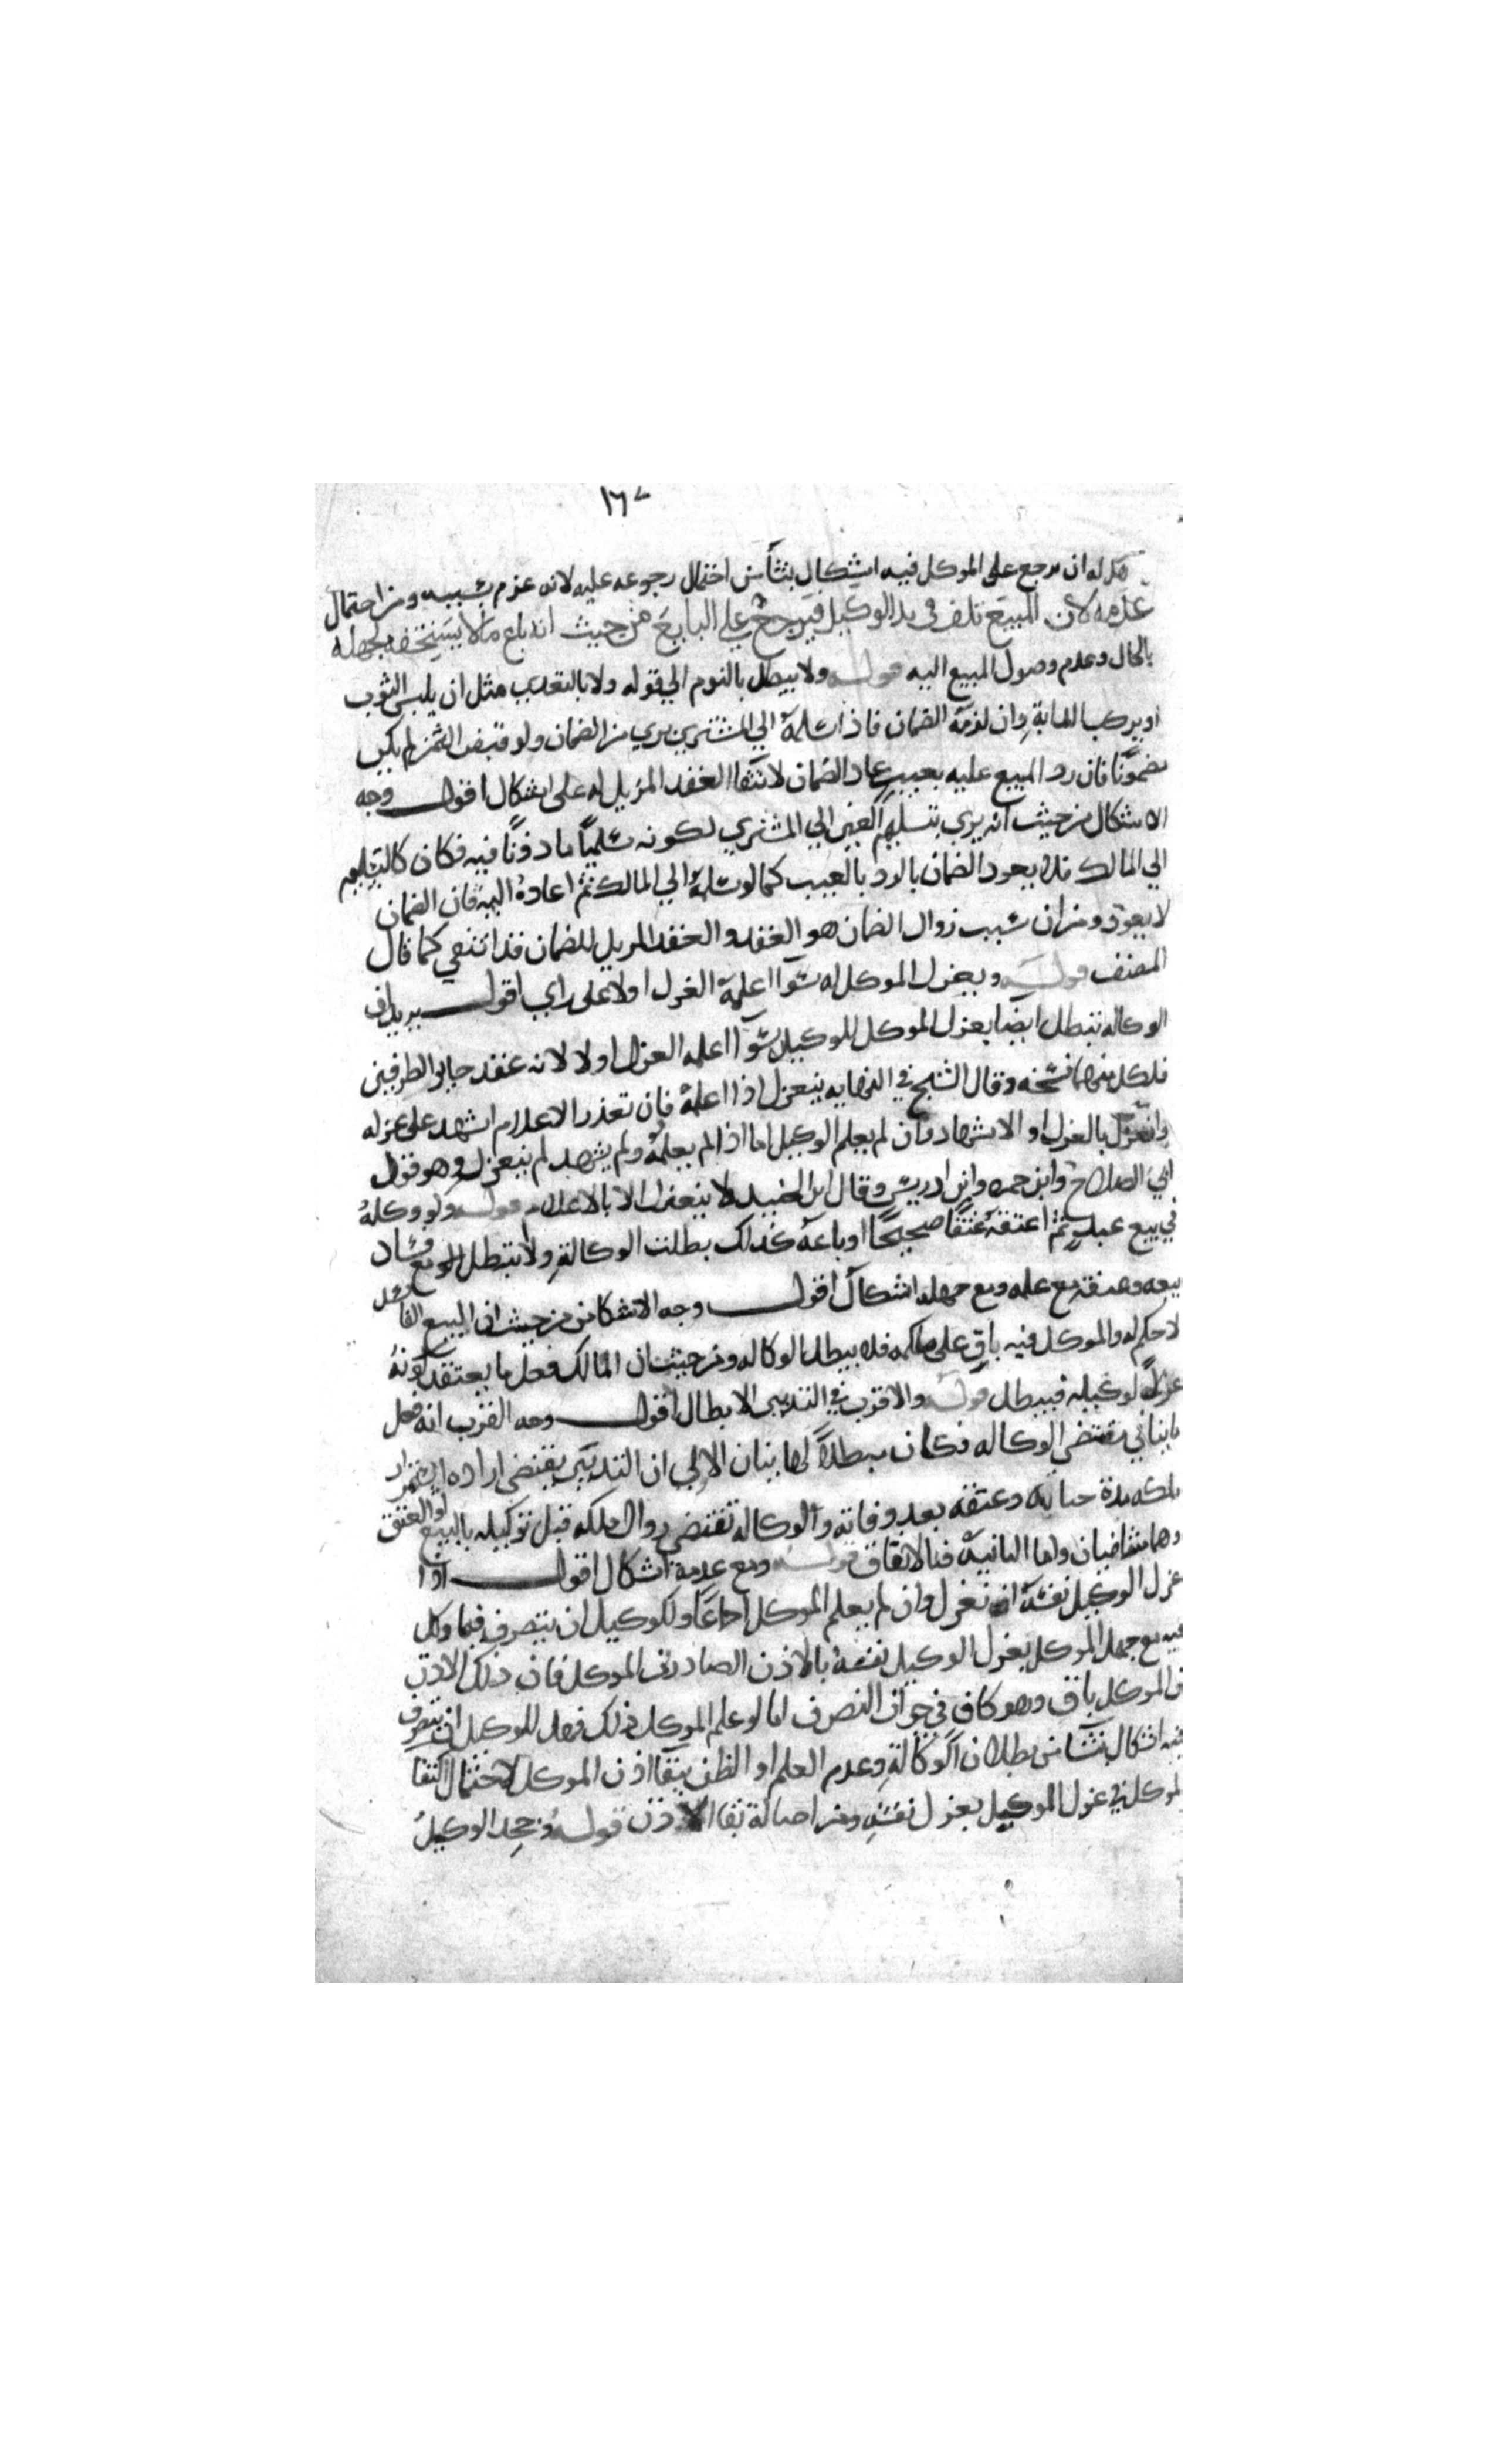 ١٦٧
هل له ان يرجع على الموكل فيه اشكال ينشأ من احتمال رجوعه عليه لانه غرم بسببه ومن احتمال
عدمه لان المبيع تلف في يد الوكيل فيرجع على البايع من حيث انه باع ما لا يستحقه بجهله
بالحال وعدم وصول المبيع اليه قوله ولا يبطل بالنوم الي قوله ولا بالتعدي مثل ان يلبس الثوب
او يركب الدابة وان لزمه الضمان فاذا سلمه الي المشتري بري من الضمان ولو قبض الثمن لم يكن
مضمونًا فان رد المبيع عليه بعيب عاد الضمان لانتفا العقد المزيل له على اشكال اقول وجه
الاشكال من حيث انه بري بتسليم العين الي المشتري لكونه تسليمًا ماذونًا فيه فكان كالتسليم
الي المالك فلا يعود الضمان بالرد بالعيب كما لو سلمه الي المالك ثم اعاده اليه فان الضمان
لا يعود ومن ان سبب زوال الضمان هو العقد والعقد المزيل للضمان قد انتفي كما قال
المصنف قوله وبعزل الموكل له سوآ اعلمه العزل اولا على راي اقول يريد ان
الوكاله تبطل ايضًا بعزل الموكل للوكيل سوآ اعلمه العزل اولا لانه عقد جايز الطرفين
فلكل منهما فسخه وقال الشيخ في النهايه ينعزل اذا اعلمه فان تعذر الاعلام اشهد على عزله
وانعزل بالعزل او الاشهاد وان لم يعلم الوكيل اما اذا لم يعلمه ولم يشهد لم ينعزل وهو قول
ابي الصلاح وابن حمزه وابن ادريس وقال ابن الجنيد لا ينعزل الا بالاعلام قوله ولو وكله
في بيع عبد ثم اعتقه عتقًا صحيحًا او باعه كذلك بطلت الوكالة ولا تبطل لو مع فساد
بيعه وعتقه مع علمه ومع جهله اشكال اقول وجه الاشكال من حيث ان البيع الفاسد
لا حكم له والموكل فيه باق على ملكه فلا يبطل الوكاله ومن حيث ان المالك فعل ما يعتقد كونه
عزلًا لوكيله فيبطل قوله والاقرب في التدبير الابطال اقول وجه القرب انه فعل
ما ينافي مقتضي الوكاله فكان مبطلًا لها بيان الاولي ان التدبير يقتضي اراده استمرار
ملكه مدة حياته وعتقه بعد وفاته والوكاله تقتضي زوال ملكه قبل توكيله بالبيع او العتق
وهما متنافيان واما الثانيه فبالاتفاق قوله ومع عدمه اشكال اقول اذا
عزل الوكيل نفسه انعزل وان لم يعلم الموكل اجماعًا وللوكيل ان يتصرف فيما وكل
فيه مع جهل الموكل بعزل الوكيل نفسه بالاذن الصادر من الموكل فان ذلك الاذن
من الموكل باق وهو كاف في جواز التصرف اما لو علم الموكل ذلك فهل للوكيل ان يتصرف
فيه اشكال ينشأ من بطلان الوكالة وعدم العلم او الظن ببقا اذن الموكل لاحتمال اكتفا
الموكل في عزل الوكيل بعزل نفسه ومن اصالة بقا الاذن قوله وجحد الوكيل